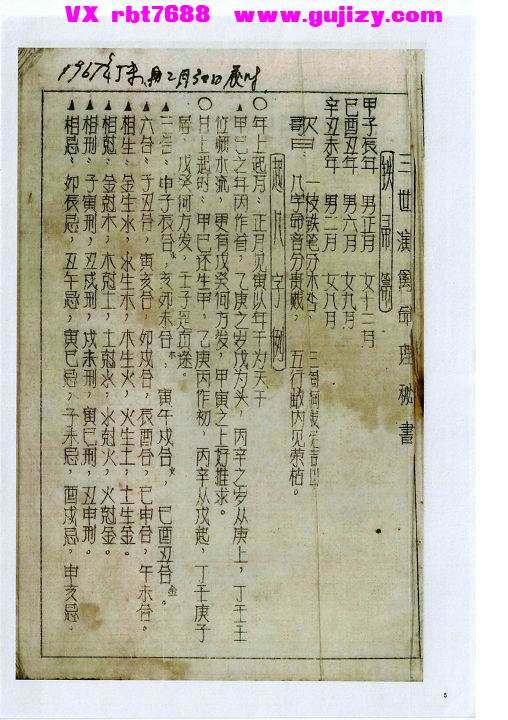 VX rbt7688 www.gujizy.com
三世演禽命理秘書
鉄帚篇
甲子辰年 男正月 女十二月
巳酉丑年 男六月 女九月
辛丑未年 男二月 女八月
一枝鉄笔分
八字命音分贵贱, 五行 内见荣枯。
起八字例
○年上起月、正月见寅以年干为天干
▲甲己之年丙作首,乙庚之岁戊为头,丙辛之岁从庚上,丁壬壬
位顺水流,更有戊癸何方发,甲寅之上好推求。
○日上起时、甲己还生甲,乙庚丙作初,丙辛从戊起,丁壬庚子
居,戊癸何方发,壬子是直迷。
▲三合、申子辰合水,亥卯未合木,寅午戌合火,巳酉丑合金。
▲六合、子丑合,寅亥合,卯戌合,辰酉合,巳申合,午未合。
▲相生、金生水,水生木,木生火,火生土,土生金。
▲相尅、金尅木,木尅土,土尅水,水尅火,火尅金。
▲相刑、子寅刑,丑戌刑,戌未刑,寅巳刑,丑申刑。
▲相忌、卯辰忌,丑午忌,寅巳忌,子未忌,酉戌忌,申亥忌。
5